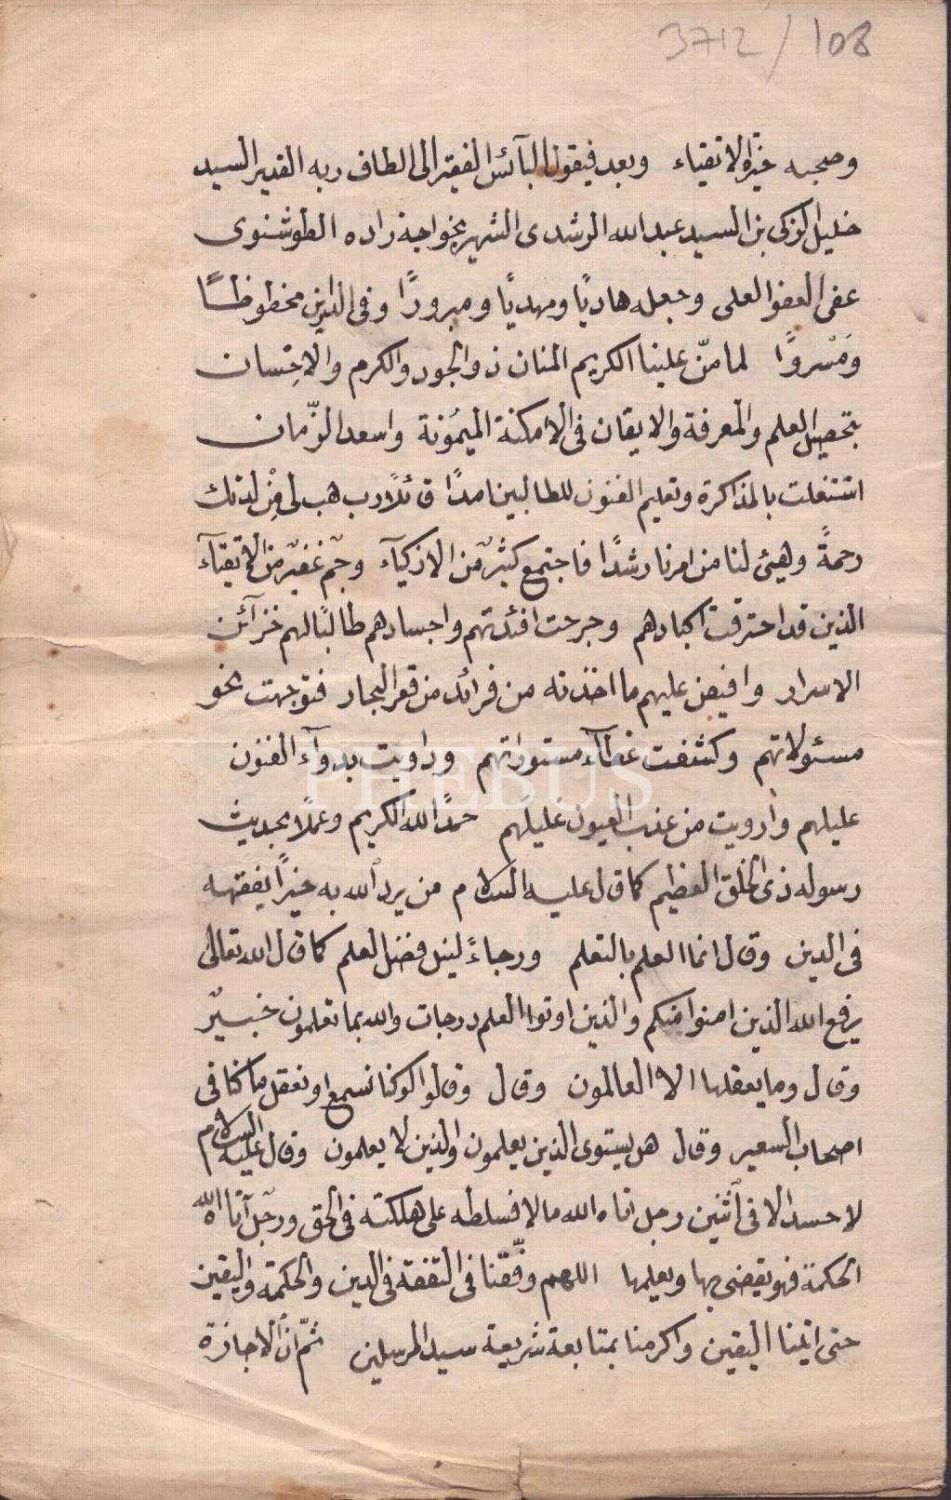 3712/108
وصحبه خيرة الاتقياء وبعد فيقول البآئس الفقير الى الطاف ربه القدير السيد
خليل الزكى بن السيد عبد الله الرشدى الشهير بخواجه زاده الطوشنوى
عفى العفو العلى وجعله هاديًا ومهديًا ومبرورًا وفى الدارين محظوظًا
ومَسْرورًا لما منّ علينا الكريم المنان ذو الجود والكرم والاحسان
بتحصيل العلم والمعرفة والايقان فى الامكنة الميمونة واسعد الزّمان
اشتغلت بالمذاكرة وتعليم الفنون للطالبين امدًا قائلًا رب هب لى مِنْ لدنك
رحمةً وهيئ لنا من امرنا رشدًا فاجتمع كثيرٌ من الاذكيآء وجمّ غفيرٌ من الاتقيآء
الذين قد احترقت اكبادهم وجرحت افئدتهم واجسادهم طالبًا لهم خزآئن
الاسرار وافيض عليهم ما اخذته من فرائد من قعر البحار فتوجهت نحو
مسئولاتهم وكشفت غطآء مستوراتهم وداويت بدوآء الفنون
PHEBUS
عليلهم وارويت من عذب العيون غليلهم حمدًا لله الكريم وعملًا بحديث
رسوله ذى الخلق العظيم كما قال عليه السلام من يرد الله به خيرًا يفقهه
فى الدين وقال انما العلم بالتعلم ورجاءً لنيل فضل العلم كما قال الله تعالى
يرفع الله الذين امنوا منكم والذين اوتوا العلم درجات والله بما تعلمون خبيرٌ
وقال وما يعقلها الا العالمون وقال وقالوا لو كنا نسمع او نعقل ما كنا فى
اصحاب السعير وقال هل يستوى الذين يعلمون والذين لا يعلمون وقال عليه السلام
لا حسد الا فى اثنين رجل اتاه الله مالا فسلطه على هلكته فى الحق ورجل آتاه الله
الحكمة فهو يقضى بها ويعلمها اللهم وفّقنا فى التفقه فى الدين والحكمة واليقين
حتى اتينا اليقين واكرمنا بمتابعة شريعة سيد المرسلين ثمّ انّ الاجازة